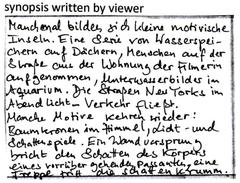 synopsis written by viewer
Manchmal bilden sich kleine motivische
Inseln. Eine Serie von Wasserspei-
chern auf Dächern, Menschen auf der
Straße aus der Wohnung der Filmerin
aufgenommen, Unterwasserbilder im
Aquarium. Die Straßen New Yorks im
Abendlicht – Verkehr fließt.
Manche Motive kehren wieder:
Baumkronen im Himmel, Licht- und
Schattenspiele. Ein Wandvorsprung
bricht den Schatten des Körpers
eines vorüber gehenden Passanten, eine
Treppe den Schatten krumm.